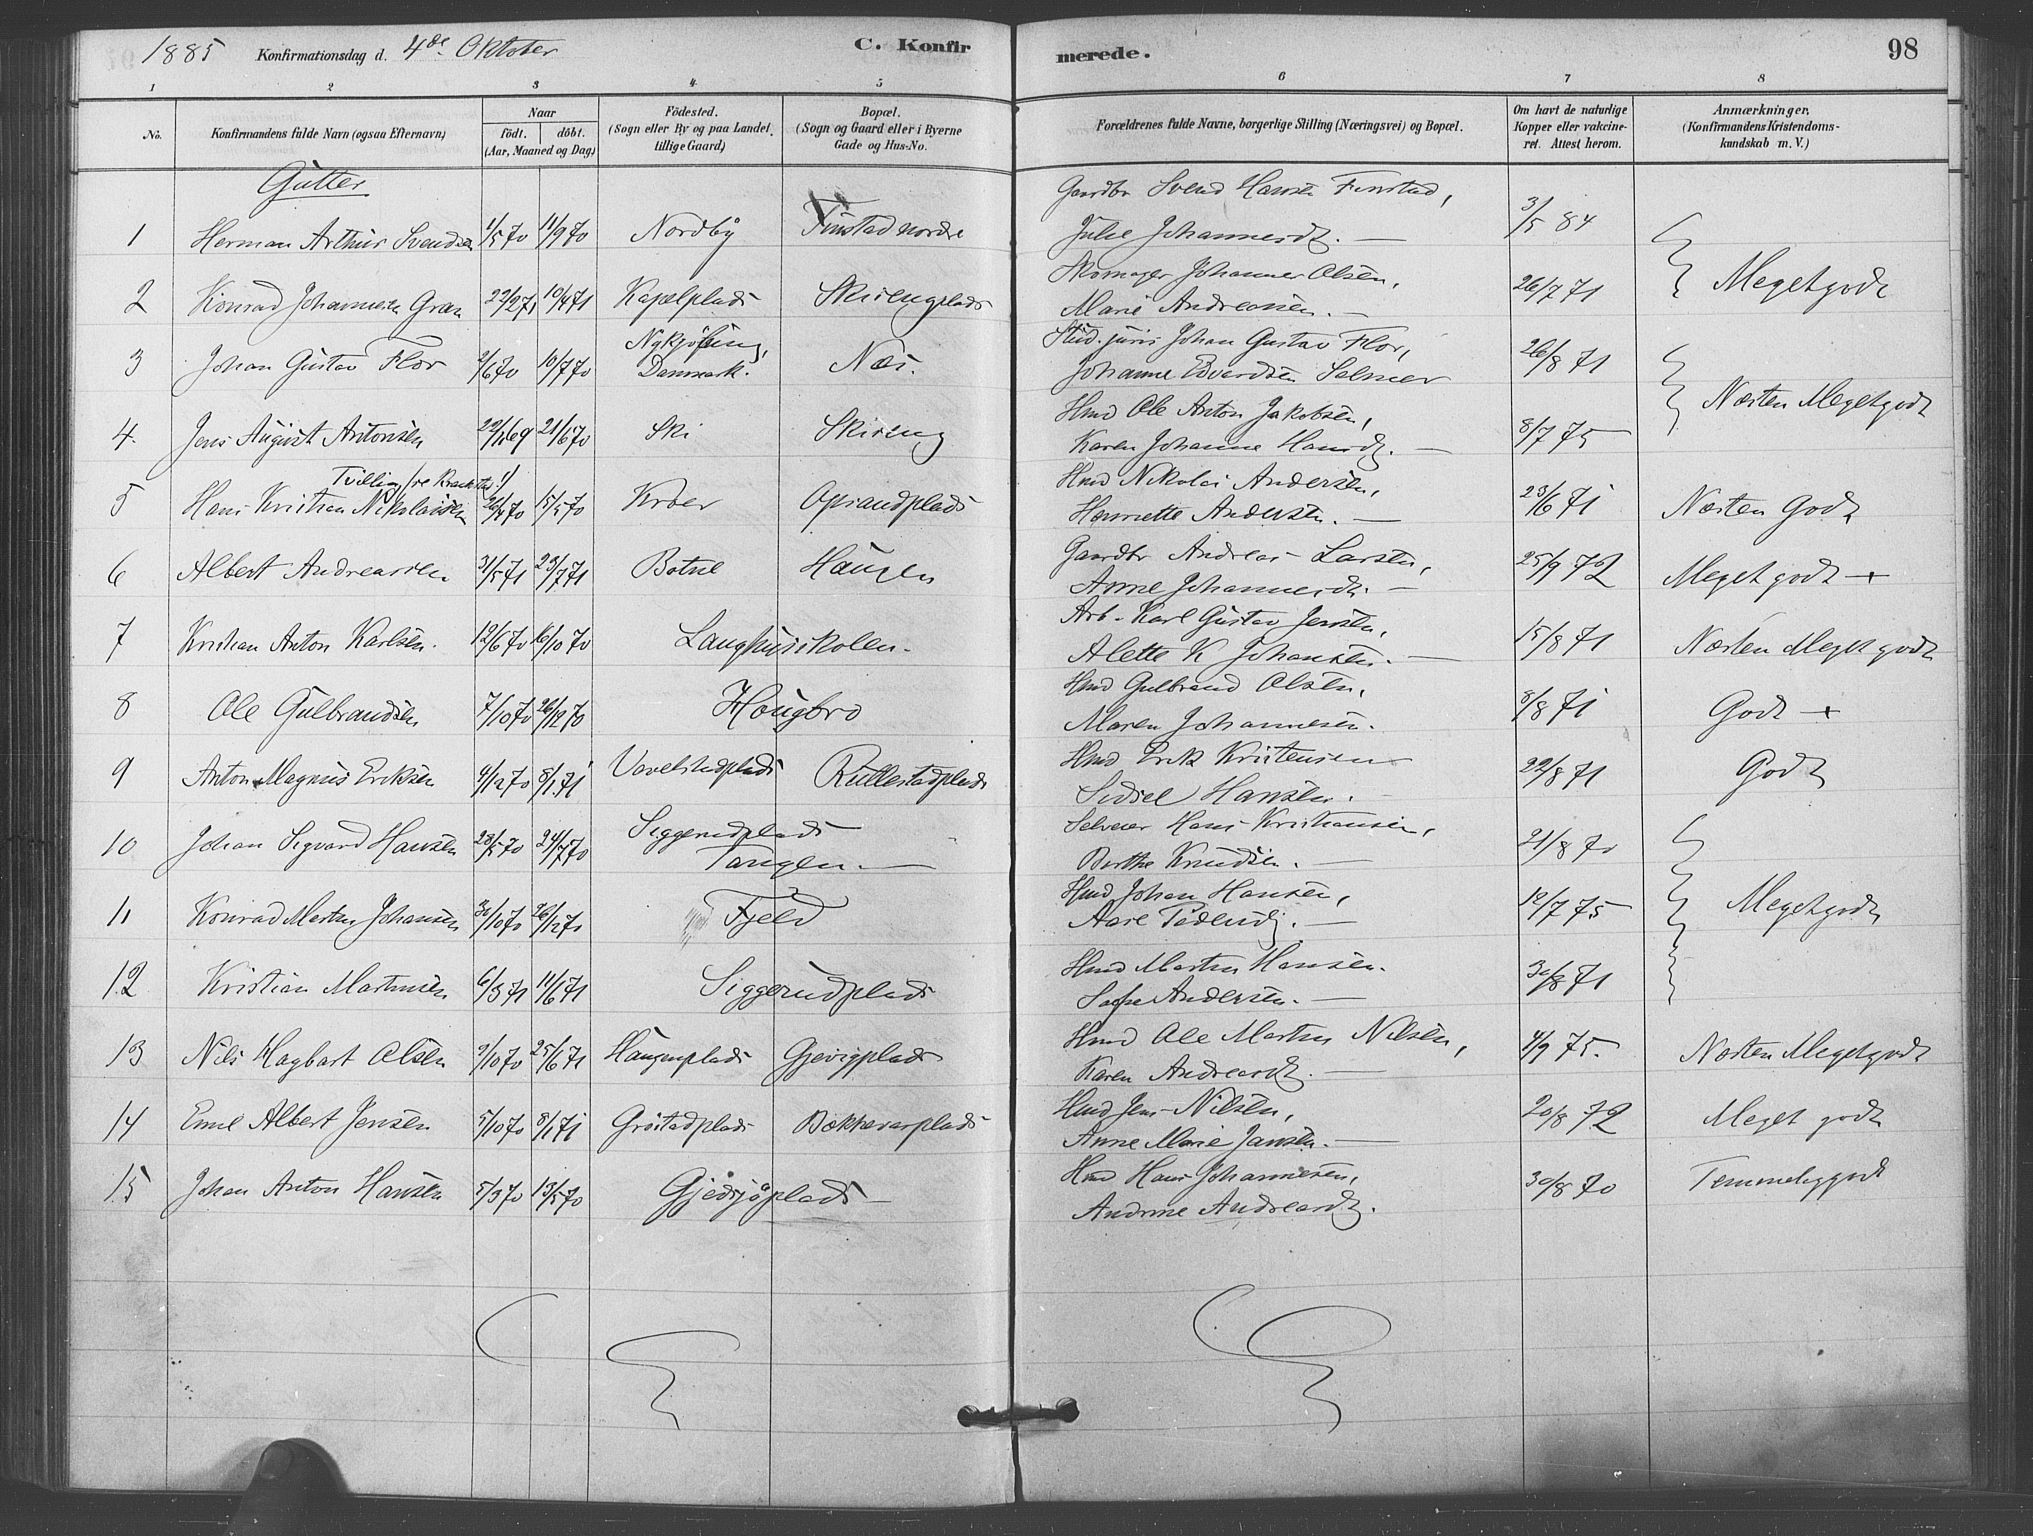 1885 Konfirmationsdag d. 4de Oktober C. Konfirmerede. 98
1 2 3 4 5 6 7 8
No. Konfirmandens fulde Navn (ogsaa Efternavn) Naar födt. döbt. (Aar, Maaned og Dag) Födested. (Sogn eller By og paa Landet tillige Gaard) Bopæl. (Sogn og Gaard eller i Byerne Gade og Hus-No. Forældrenes fulde Navne, borgerlige Stilling (Næringsvei) og Bopæl. Om havt de naturlige Kopper eller vakcineret. Attest herom. Anmærkninger. (Konfirmandens Kristendomskundskab m. V.)
Gutter
1 Herman Arthur Svendsen 1/5 70 11/9 70 Nordby Finstad nordre Gaardbr Svend Hansen Finstad, 3/5 84
Julie Johannesdt. —
2 Konrad Johannesen Gran 22/2 71 10/4 71 Kapelplads Skiengplads Skomager Johannes Olsen, 26/7 71 Megetgodt
Marie Andreassen. —
3 Johan Gustav Flor 2/6 70 10/7 70 Nykjöbing, Danmark. Næs. Stud. juris Johan Gustav Flor, 26/8 71
Johanne Edvardsen Selmer
4. Jens August Antonsen 69 21/6 70 Ski Skieng Hmd Ole Anton Jakobsen, 8/7 75 Næsten Megetgodt
Karen Johanne Hansdt. —
5 Hans Kristian Nikolaisen 26/4 70 15/5 70 Kroer Opsandplads Hmd Nikolai Andersen, 23/6 71 Næsten Godt
Henriette Andersen. —
6 Albert Andreassen 31/5 71 23/7 71 Botne Haugen Gaardbr Andreas Larsen, 25/9 72 Meget godt +
Anne Johannesdt. —
7 Kristian Anton Karlsen. 12/6 70 16/10 70 Langhusskolen. Arb. Karl Gustav Jensen, 15/8 71 Næsten Meget godt
Alette K Johansen. —
8 Ole Gulbrandsen 7/10 70 26/12 70 Hougbro Hmd Gulbrand Olsen, 8/8 71 Godt +
Maren Johannesen.
9 Anton Magnus Eriksen 4/12 70 8/1 71 Vevelstadplads Rullestadplads Hmd Erik Kristensen 22/8 71 Godt
Sidsel Hansen.
10 Johan Sigvard Hansen 28/5 70 24/7 70 Siggerudplads Tangen. — Selveier Hans Kristiansen, 21/8 70
Berthe Knudsen. —
11 Konrad Martin Johansen 30/10 70 26/12 70 Fjeld Hmd Johan Hansen, 12/7 75 Megetgodt
Aase Pedersdt. —
12 Kristian Martinsen 6/3 71 11/6 71 Siggerudplads Hmd Martin Hansen. 30/8 71
Sofie Andersen. —
13 Nils Hagbart Olsen 9/10 70 25/6 71 Haugenplads Gjevigplads Hmd Ole Martin Nilsen, 4/9 75. Næsten Megetgodt
Karen Andreasdt. —
14 Emil Albert Jensen 5/10 70 8/1 71 Gröstadplads Bækkevarplads Hmd Jens Nilsen, 20/8 72 Meget godt
Anne Marie Jansen. —
15 Johan Anton Hansen 5/3 70 13/5 70 Gjedsjöplads — Hmd Hans Johannesen, 30/8 70 Temmeliggodt
Andrine Andreasdt.